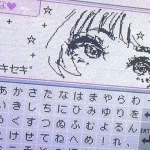 な♥
キセキ
あかさたなはまやらわ
いきしちにひみゆりを
うくすつぬふむよるん
えけせてねへめ！れ
ENT